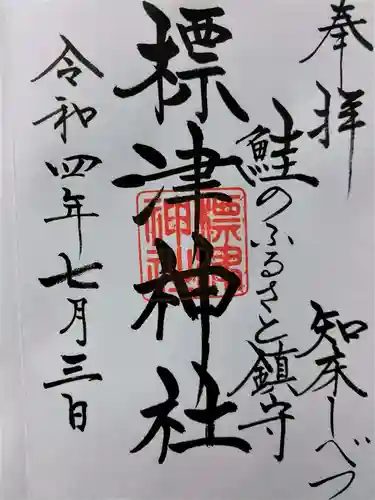 奉拝
知床しべつ
鮭のふるさと鎮守
標津神社
標津神社
令和四年七月三日